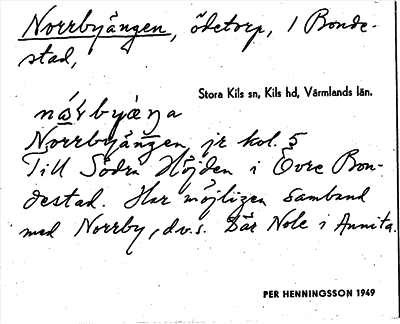 Norrbyängen, ödetorp, i Bonde-
stad,
Stora Kils sn, Kils hd, Värmlands län.
Norrbyängen, jr kol. 5
Till Södra Höjden i Övre Bon-
destad. Har möjligen samband
med Norrby, d.v.s. Där Nole i Annita.
PER HENNINGSSON 1949